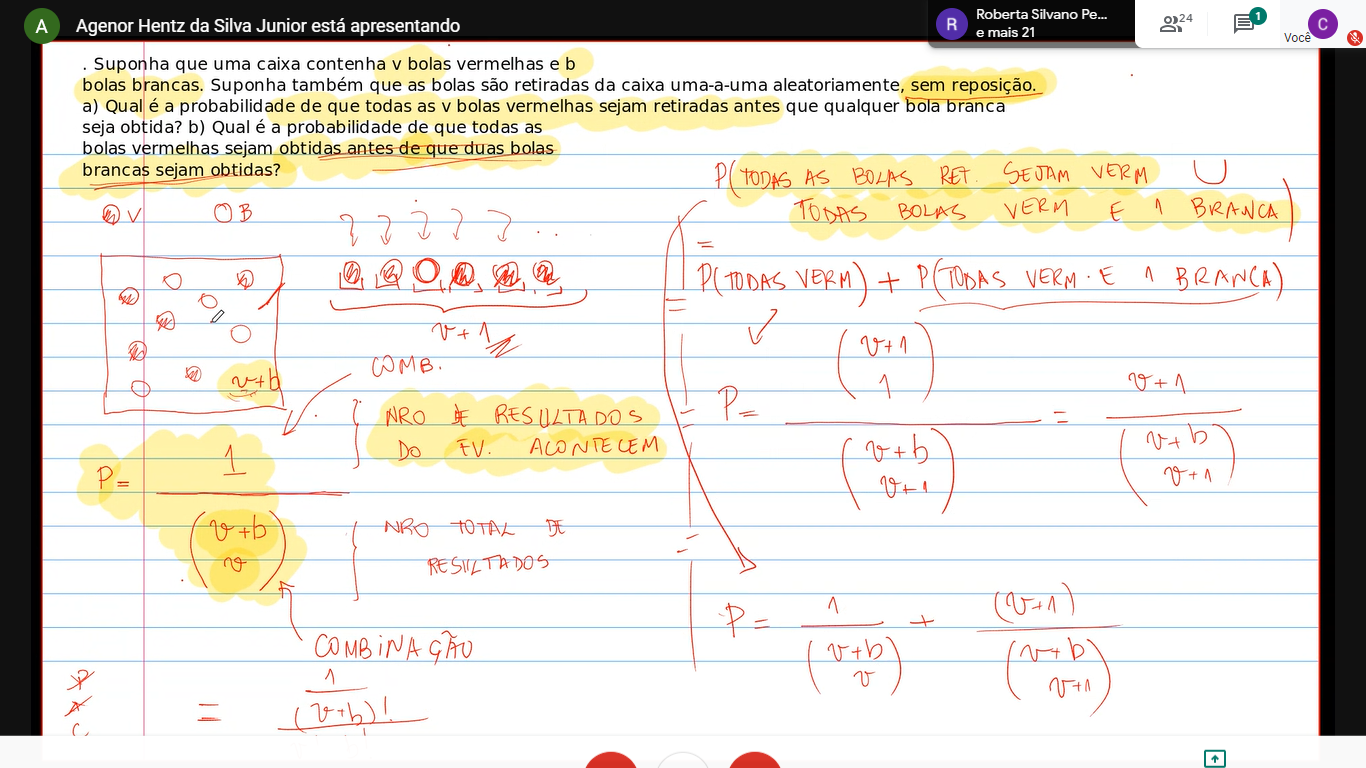 A Agenor Hentz da Silva Junior está apresentando
R Roberta Silvano Pe...
e mais 21
24
1
C
Você
. Suponha que uma caixa contenha v bolas vermelhas e b
bolas brancas. Suponha também que as bolas são retiradas da caixa uma-a-uma aleatoriamente, sem reposição.
a) Qual é a probabilidade de que todas as v bolas vermelhas sejam retiradas antes que qualquer bola branca
seja obtida? b) Qual é a probabilidade de que todas as
bolas vermelhas sejam obtidas antes de que duas bolas
brancas sejam obtidas?
V B
v+b
v+1
COMB.
P = 1
(v+b
v)
NRO DE RESULTADOS
DO EV. ACONTECEM
NRO TOTAL DE
RESULTADOS
COMBINAÇÃO
P
A
C
= 1
(v+b)!
P(TODAS AS BOLAS RET. SEJAM VERM U
TODAS BOLAS VERM E 1 BRANCA)
=
= P(TODAS VERM) + P(TODAS VERM. E 1 BRANCA)
P = (v+1
1)
(v+b
v+1)
= v+1
(v+b
v+1)
P = 1
(v+b
v)
+ (v+1)
(v+b
v+1)